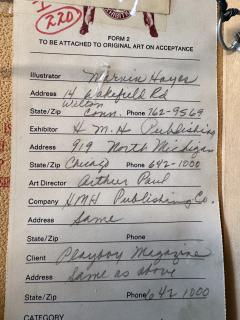 I
220
FORM 2
TO BE ATTACHED TO ORIGINAL ART ON ACCEPTANCE
Illustrator Marvin Hayes
Address 14 Wakefull Rd
Wilton
State/Zip Conn. Phone 762-9569
Exhibitor H M H Publishing
Address 919 North Michigan
State/Zip Chicago Phone 642-1000
Art Director Arthur Paul
Company HMH Publishing Co.
Address Same
State/Zip Phone
Client Playboy Magazine
Address Same as above
State/Zip Phone 642 1000
CATEGORY